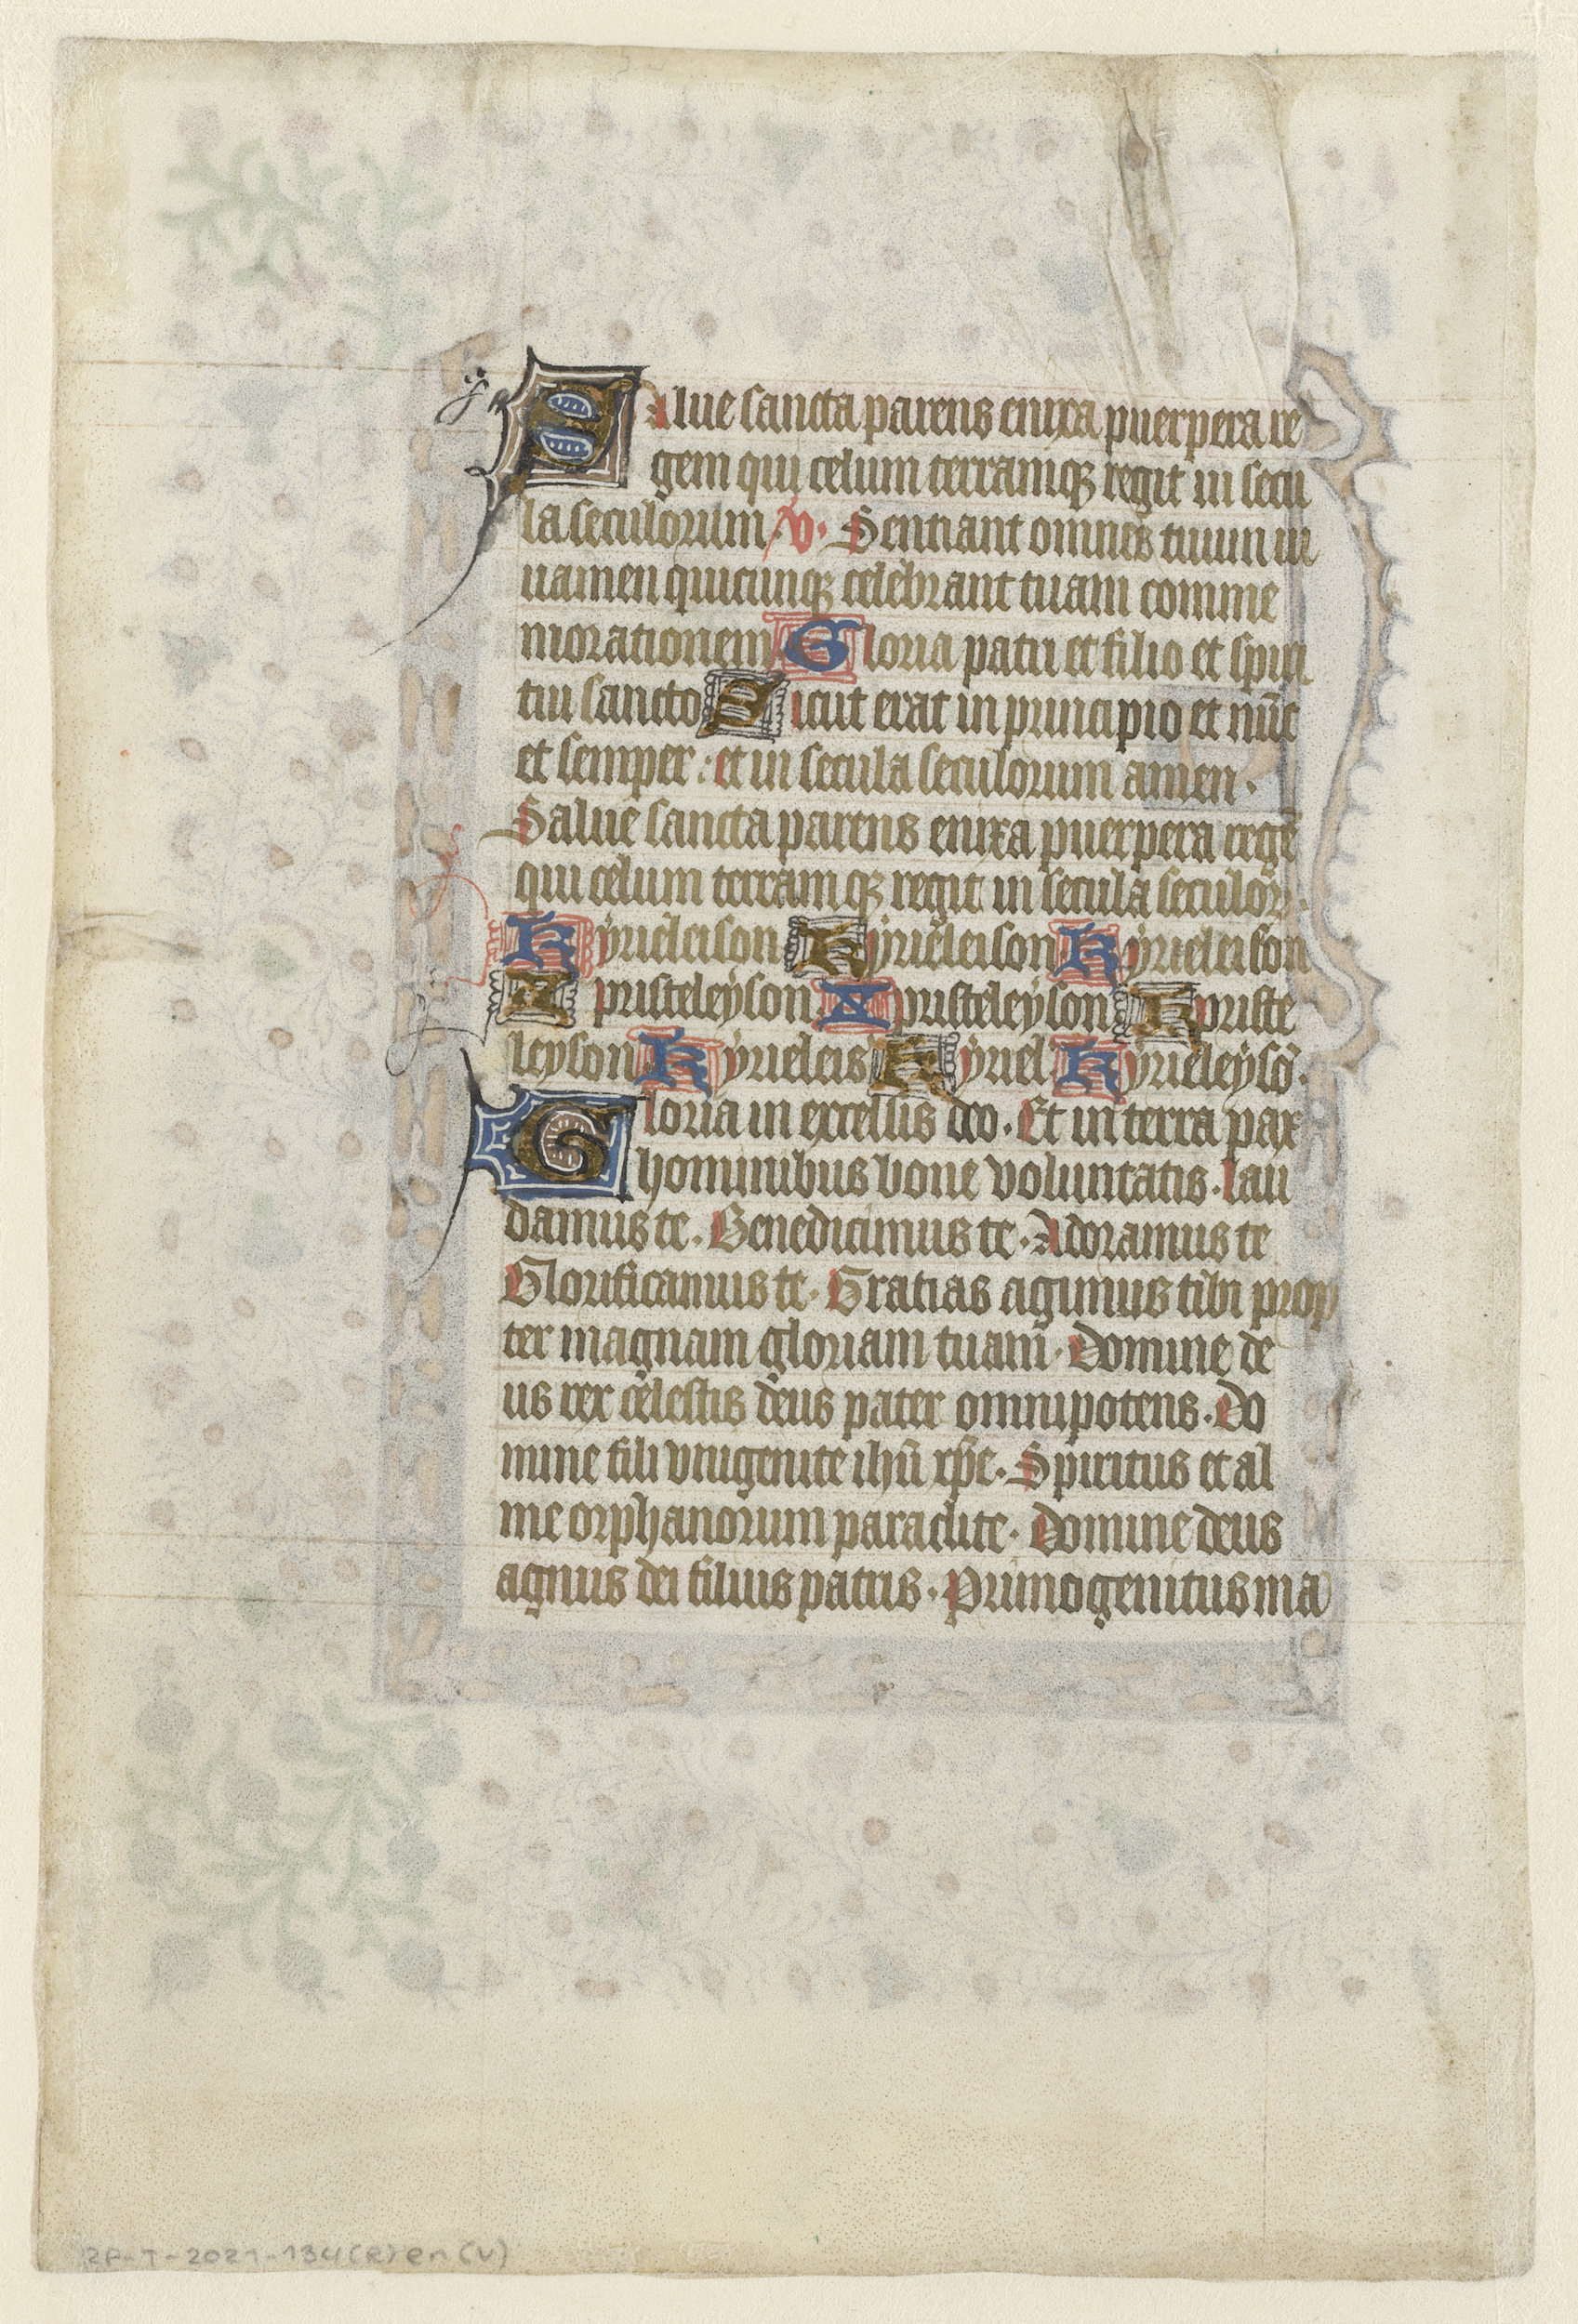 Salue sancta parens enixa puerpera re
gem qui celum terramqꝫ regit in secu
la seculorum. v. Sentiant omnes tuum iu
uamen quicunqꝫ celebrant tuam comme
morationem Gloria patri et filio et spiri
tui sancto Sicut erat in principio et nūc
et semper: et in secula seculorum amen.
Salue sancta parens enixa puerpera regē
qui celum terramqꝫ regit in secula seculoꝝ.
Kyrieleison Kyrieleison Kyrieleison
Xpristeleyson Xpristeleyson Xpriste
leyson Kyrieleis Kyriel. Kyrieleysō.
Gloria in excelsis deo. Et in terra pax
hominibus bone voluntatis. lau
damus te. Benedicimus te. Adoramus te
Glorificamus te. Gratias agimus tibi prop
ter magnam gloriam tuam. Domine de
us rex celestis deus pater omnipotens. Do
mine fili vnigenite ihū xp̄e. Spiritus et al
me orphanorum paraclite. Domine deus
agnus dei filius patris. Primogenitus ma
RP-T-2021-134(R) en (V)